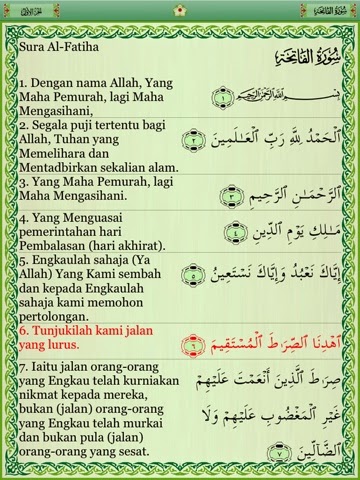 الجزء الأول
سورة الفاتحة
Sura Al-Fatiha
سُورَةُ الفَاتِحَةِ
1. Dengan nama Allah, Yang
Maha Pemurah, lagi Maha
Mengasihani,
بِسْمِ اللَّهِ الرَّحْمَٰنِ الرَّحِيمِ ١
2. Segala puji tertentu bagi
Allah, Tuhan yang
Memelihara dan
Mentadbirkan sekalian alam.
ٱلْحَمْدُ لِلَّهِ رَبِّ ٱلْعَٰلَمِينَ ٢
3. Yang Maha Pemurah, lagi
Maha Mengasihani.
ٱلرَّحْمَٰنِ ٱلرَّحِيمِ ٣
4. Yang Menguasai
pemerintahan hari
Pembalasan (hari akhirat).
مَٰلِكِ يَوْمِ ٱلدِّينِ ٤
5. Engkaulah sahaja (Ya
Allah) Yang Kami sembah
dan kepada Engkaulah
sahaja kami memohon
pertolongan.
إِيَّاكَ نَعْبُدُ وَإِيَّاكَ نَسْتَعِينُ ٥
6. Tunjukilah kami jalan
yang lurus.
ٱهْدِنَا ٱلصِّرَٰطَ ٱلْمُسْتَقِيمَ ٦
7. Iaitu jalan orang-orang
yang Engkau telah kurniakan
nikmat kepada mereka,
bukan (jalan) orang-orang
yang Engkau telah murkai
dan bukan pula (jalan)
orang-orang yang sesat.
صِرَٰطَ ٱلَّذِينَ أَنْعَمْتَ عَلَيْهِمْ
غَيْرِ ٱلْمَغْضُوبِ عَلَيْهِمْ وَلَا
ٱلضَّآلِّينَ ٧